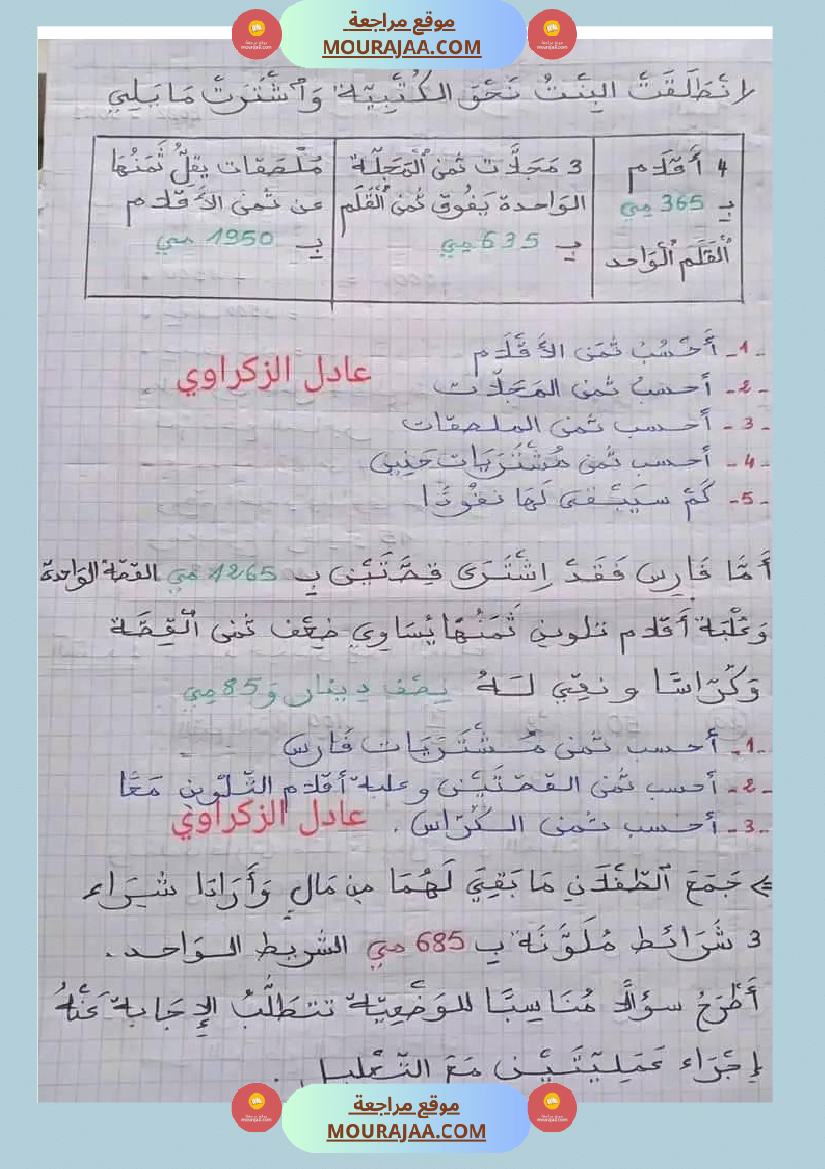 موقع مراجعة
MOURAJAA.COM
لانطَلَقَتْ البِنْتُ نَحْوَ الكُتْبِيَّة وَاشْتَرَتْ مَا يَلِي
4 أَقْلَام
بِـ 365 مي
اَلْقَلَم اُلْوَاحد
3 مَجَلَّات ثمن اُلْمَجَلَّة
الوَاحدة يَفُوق ثمن اُلْقَلَم
بِـ 635 مي
مُلْصَقات يقلُّ ثَمَنُهَا
عن ثمن الأَقْلَام
بِـ 1950 مي
-1- أَحْسُبُ ثمَن الأَقْلَام
-2- أحسبُ ثمن المَجَلَّات
-3- أحسب ثمن الملصقات
-4- أحسب ثمن مُشْتَرَيَات حَنِين
-5- كَمْ سيَبْقَى لَهَا نقُودًا
عادل الزكراوي
أَمَّا فَارِس فَقَدْ اِشْتَرَى قِصَّتَيْن بِـ 1265 مي القصّة الوَاحدة
وَعُلْبَة أَقلام تلوين ثَمَنُهَا يُسَاوِي ضِعْف ثمن الْقِصَّة
وَكُرَّاسًا و بَقِيَ لَـهُ نِصْف دِينَار وَ 85 مي
-1- أحسب ثمن مُـشْتَرَيَات فَارس
-2- أحسب ثمن القصّتَيْن وعلبة أقلام التّلوين مَعًا
-3- أحسب ثمن الـكُرّاس .
عادل الزكراوي
جَمَعَ الطّفْلَان مَا بَقِيَ لَهُمَا مِن مَالٍ وَأَرَادَا شِرَاء
3 شَرَائط مُلَوَّنَة بِـ 685 مي الشريط الـوَاحد.
أَطْرَحُ سؤالًا مُنَاسِبًا للوَضْعِيّة تتطَلَّبُ الإِجَابة عَنْهُ
إجْرَاء عَمَلِيّتَيْن مَعَ التّعْليل .
موقع مراجعة
MOURAJAA.COM